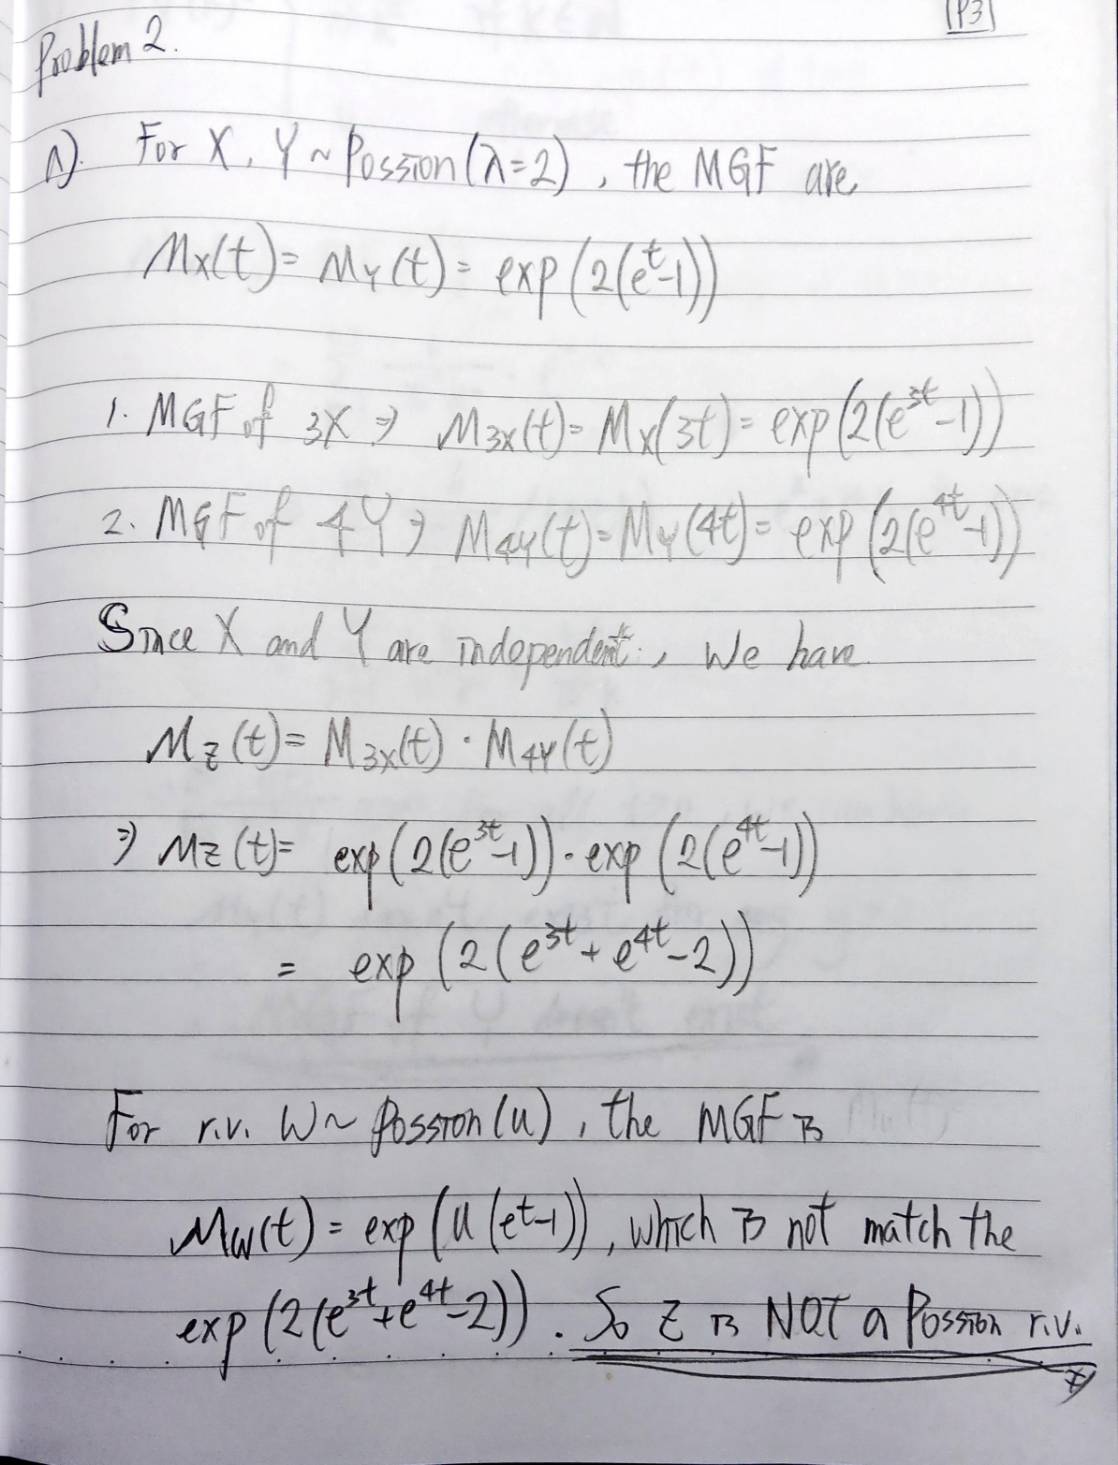 [P3]
Problem 2.
A). For X, Y ~ Possion(λ=2), the MGF are
Mx(t) = My(t) = exp(2(e^t-1))
1. MGF of 3X ⇒ M3x(t) = Mx(3t) = exp(2(e^3t-1))
2. MGF of 4Y ⇒ M4y(t) = My(4t) = exp(2(e^4t-1))
Since X and Y are independent, We have
Mz(t) = M3x(t) · M4Y(t)
⇒ Mz(t) = exp(2(e^3t-1)) · exp(2(e^4t-1))
= exp(2(e^3t + e^4t - 2))
For r.v. W ~ Possion(u), the MGF is
Mw(t) = exp(u(e^t-1)), which is not match the
exp(2(e^3t + e^4t - 2)). So Z is NOT a Possion r.v.